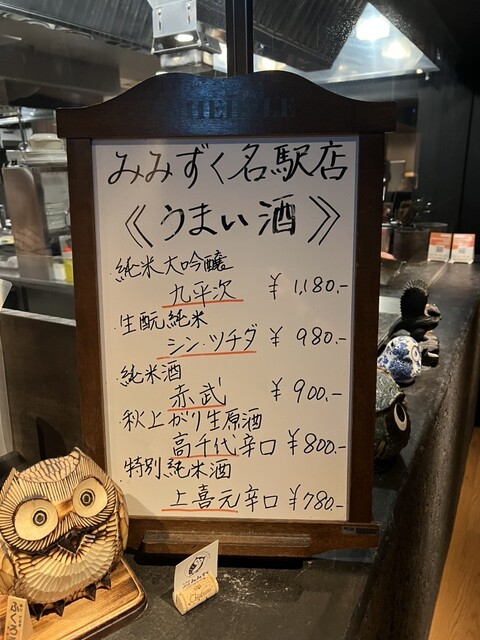 みみずく名駅店
《うまい酒》
純米大吟醸
九平次 ¥1,180.-
生酛純米
シン・ツチダ ¥980.-
純米酒
赤武 ¥900.-
秋上がり生原酒
高千代辛口 ¥800.-
特別純米酒
上喜元辛口 ¥780.-